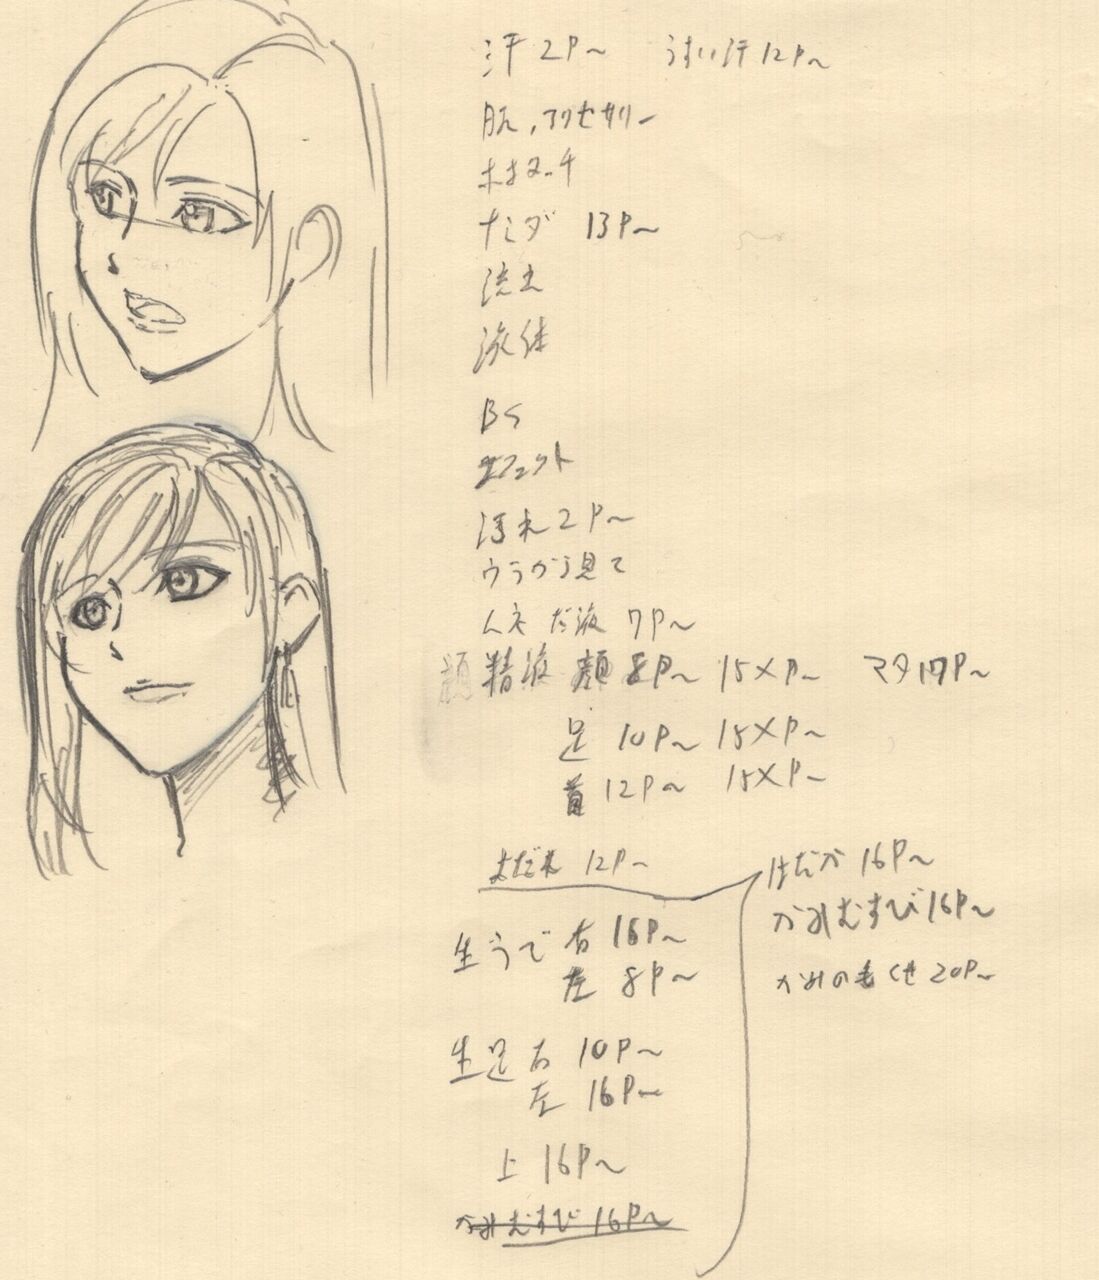 汗 2P~ うすい汗 12P~
肌、アクセサリー
ナミダ 13P~
流血
液体
BS
エフェクト
汚れ 2P~
ウラから見て
だ液 7P~
顔 精液 顔 8P~ 15×P~ マタ 17P~
足 10P~ 15×P~
首 12P~ 15×P~
よだれ 12P~
はだか 16P~
かみむすび 16P~
かみの毛くせ 20P~
生うで 右 16P~
左 8P~
生足 右 10P~
左 16P~
上 16P~
かみむすび 16P~